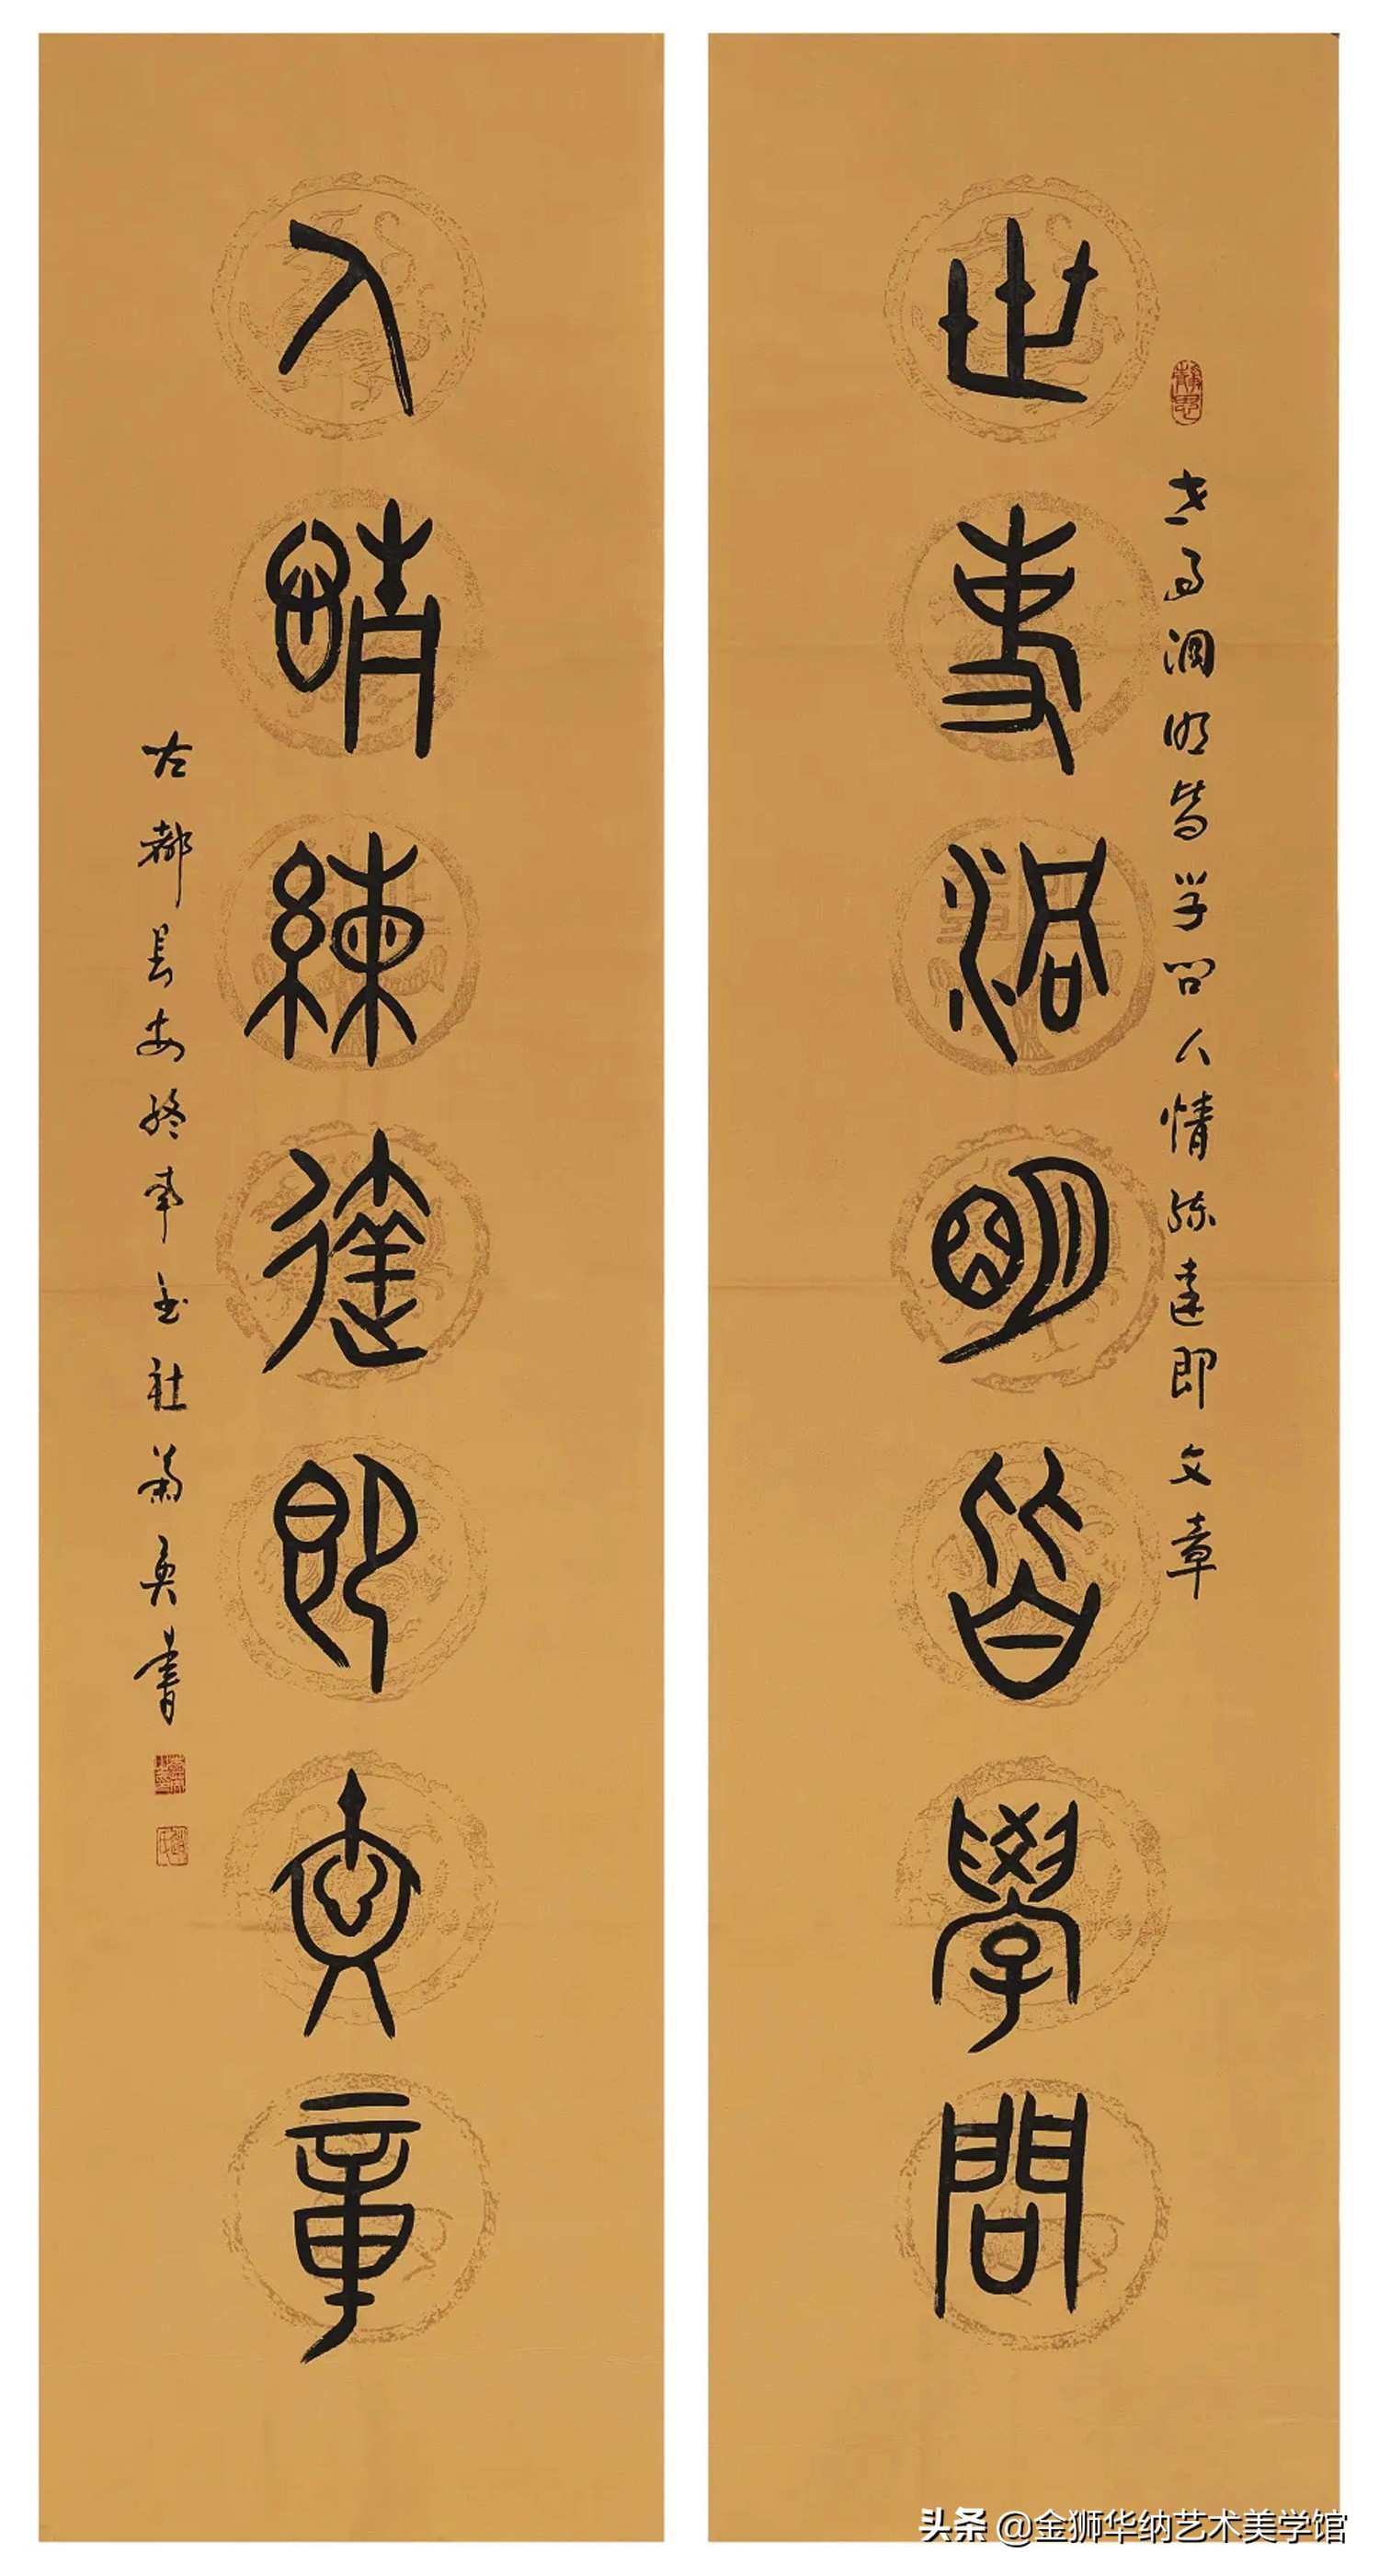 世事洞明皆學問
世事洞明皆学问人情练达即文章
人情練達即文章
古都长安终南书社
書
头条 @金狮华纳艺术美学馆